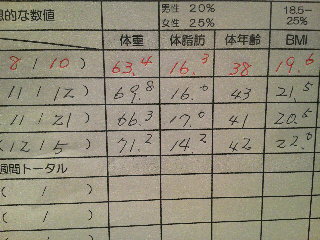 想的な数値 男性 20% 女性 25% 18.5-25%
体重 体脂肪 体年齢 BMI
(8/10) 63.4 16.3 38 19.6
(11/12) 69.8 16.0 43 21.5
(11/21) 66.3 17.0 41 20.5
(12/5) 71.2 14.2 42 22.0
週間トータル
( / )
( / )
( / )